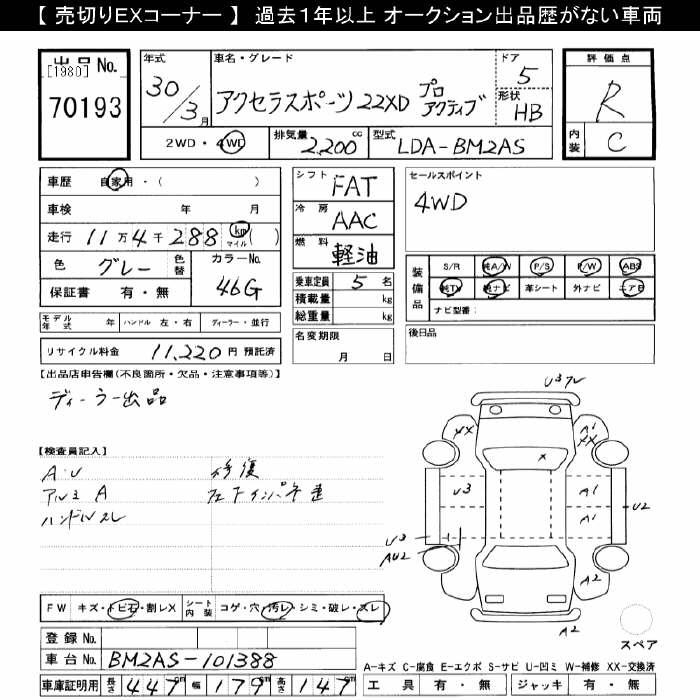 【 売切りEXコーナー 】 過去1年以上 オークション出品歴がない車両
出品 No.
[1980]
70193
年式
30/3月
車名・グレード
アクセラスポーツ 22XD プロアクティブ
ドア
5
形状
HB
2WD・4WD
排気量
2,200 cc
型式
LDA-BM2AS
評価点
R
内装
C
車歴 自家用・( )
車検 年 月
走行 11万4千288 km マイル ( )
色 グレー 色替 カラーNo. 46G
保証書 有・無
モデル年式 年 ハンドル 左・右 ディーラー・並行
リサイクル料金 11,220 円 預託済
シフト FAT
冷房 AAC
燃料 軽油
乗車定員 5 名
積載量 kg
総重量 kg
名変期限 月 日
セールスポイント
4WD
装備品 S/R 純A/W P/S P/W ABS
純TV 純ナビ 革シート 外ナビ エアB
ナビ型番:
後日品
【出品店申告欄(不良箇所・欠品・注意事項等)】
ディーラー出品
【検査員記入】
A・U 修復
アルミ A
ハンドルスレ
FW キズ・トビ石・割レX シート内装 コゲ・穴・汚レ・シミ・破レ・スレ
登録 No.
車台 No. BM2AS-101388
車庫証明用 長さ 447 cm 幅 179 cm 高さ 147 cm
U3
XX
A1
XX
X
U3
A1
A1
U2
U3
AU2
A2
A2
スペア
A-キズ C-腐食 E-エクボ S-サビ U-凹ミ W-補修 XX-交換済
工具 有・無 ジャッキ 有・無